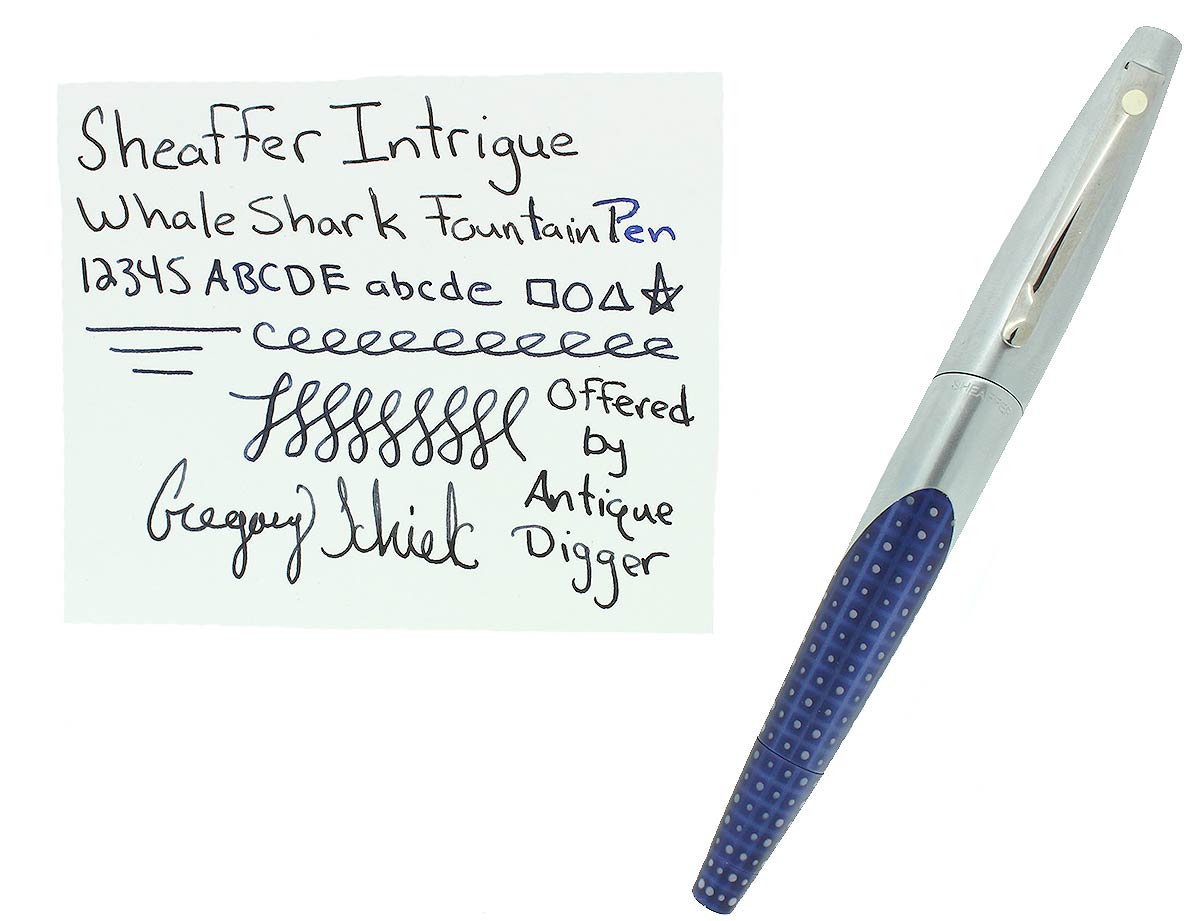 Sheaffer Intrigue
Whale Shark Fountain Pen
12345 ABCDE abcde
Offered
by
Antique
Digger
Gregory Schiek
SHEAFFER